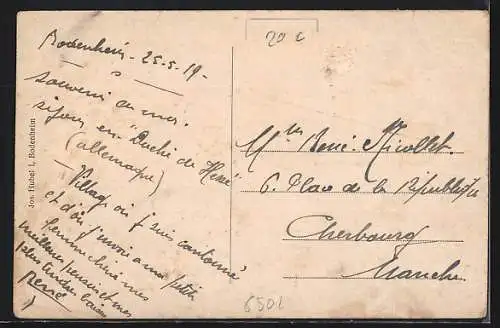 Bodenheim - 25-5-19-
souvenir de mon
séjour en "Duché de Hesse"
(allemagne)
Village où j'suis cantonné
et d'où j'envoie à ma petite
femme chérie mes
meilleures pensées et mes
plus tendres baisers
René
Jos. Huber I., Bodenheim
20 c
Mme René Nicollet
6. Place de la République
Cherbourg
Manche
6501